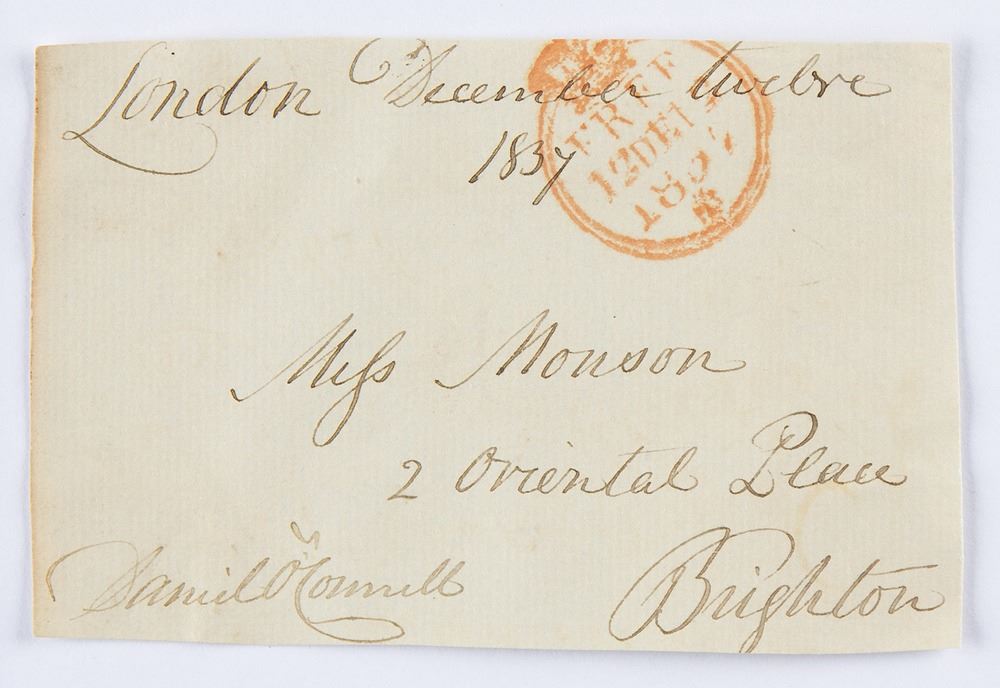 London December twelve
1837
FREE
12DE12
1837
Miss Monson
2 Oriental Place
Daniel O'Connell
Brighton